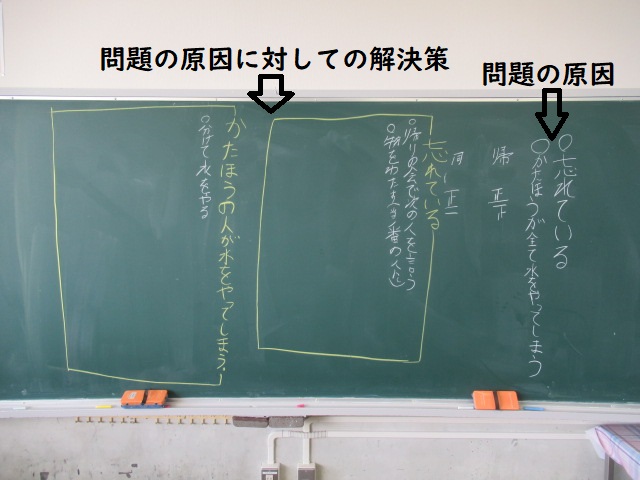 問題の原因に対しての解決策
問題の原因
〇忘れている
〇かたほうが全て水をやってしまう
帰 正下
何 正一
忘れている
〇帰りの会で次の人を言う
かたほうの人が水をやってしまう。
〇分けて水をやる